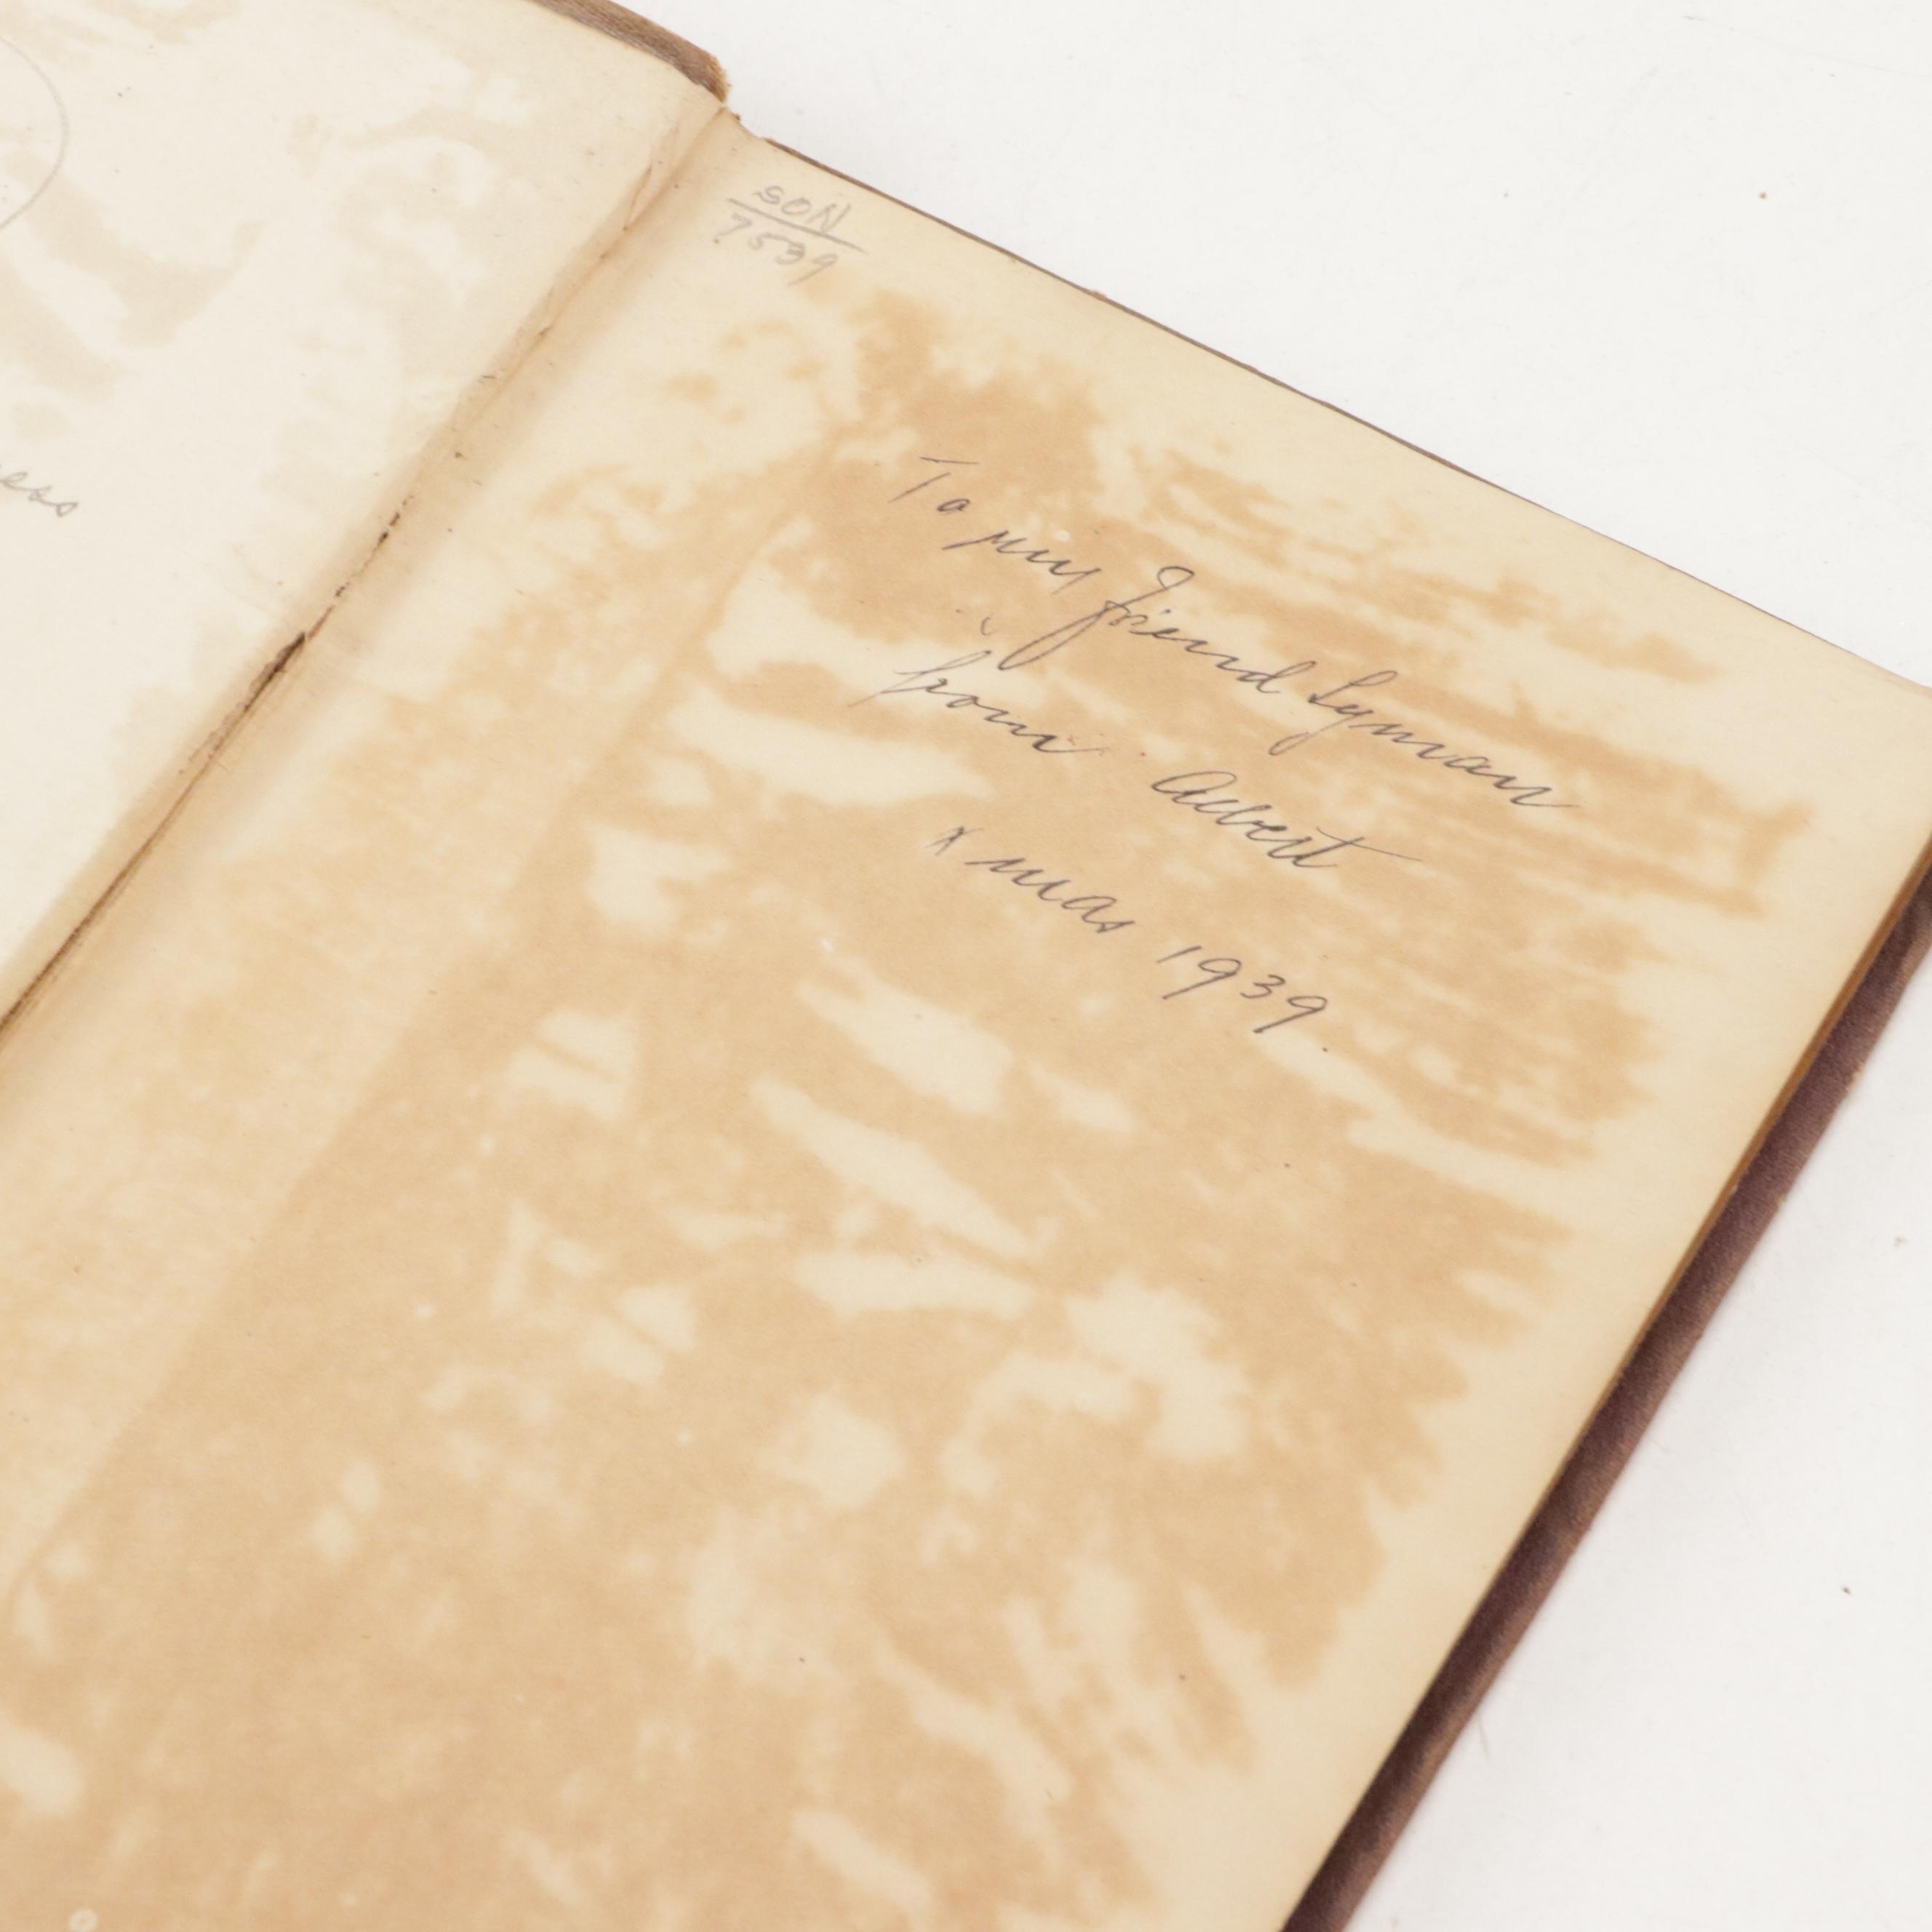 SON
7539
To my friend Lyman
from Albert
Xmas 1939